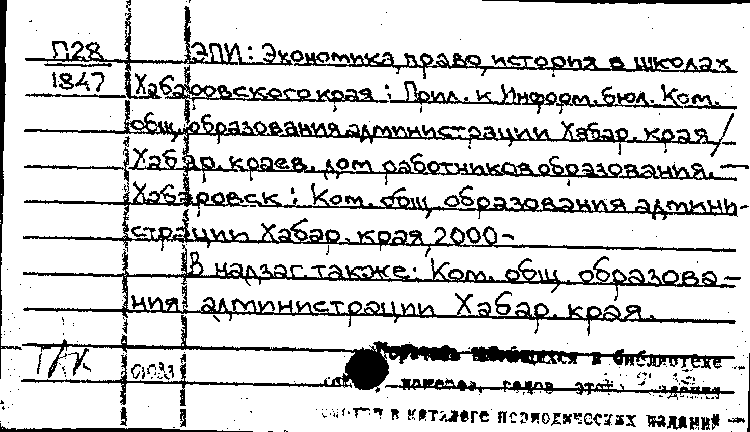 П28 ЭПИ: Экономика, право, история в школах
1847 Хабаровского края: Прил. к Информ. бюл. Ком.
общ. образования администрации Хабар. края/
Хабар. краев. дом работников образования. —
Хабаровск: Ком. общ. образования админи-
страции Хабар. края, 2000-
В надзаг. также: Ком. общ. образова-
ния администрации Хабар. края.
Перечень имеющихся в библиотеке
ГАК номеров, годов этого издания
смотри в каталоге периодических изданий